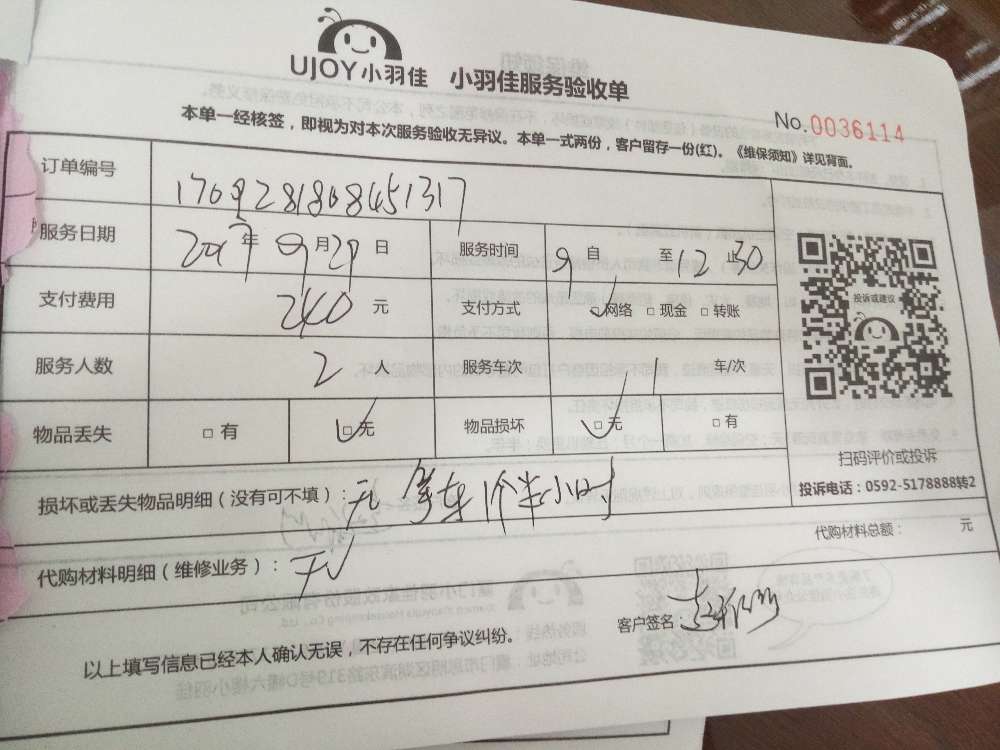 UJOY小羽佳 小羽佳服务验收单
No.0036114
本单一经核签，即视为对本次服务验收无异议。本单一式两份，客户留存一份(红)。《维保须知》详见背面。
订单编号
服务日期 年 9月29日 服务时间 9 自 至 12 止30
支付费用 240 元 支付方式 网络 □ 现金 □ 转账
服务人数 2 人 服务车次 1 车/次
物品丢失 □ 有 □ 无 物品损坏 □ 无 □ 有
投诉或建议
扫码评价或投诉
投诉电话：0592-5178888转2
损坏或丢失物品明细（没有可不填）：无 等车1个半小时
代购材料总额： 元
代购材料明细（维修业务）：无
客户签名：
以上填写信息已经本人确认无误，不存在任何争议纠纷。